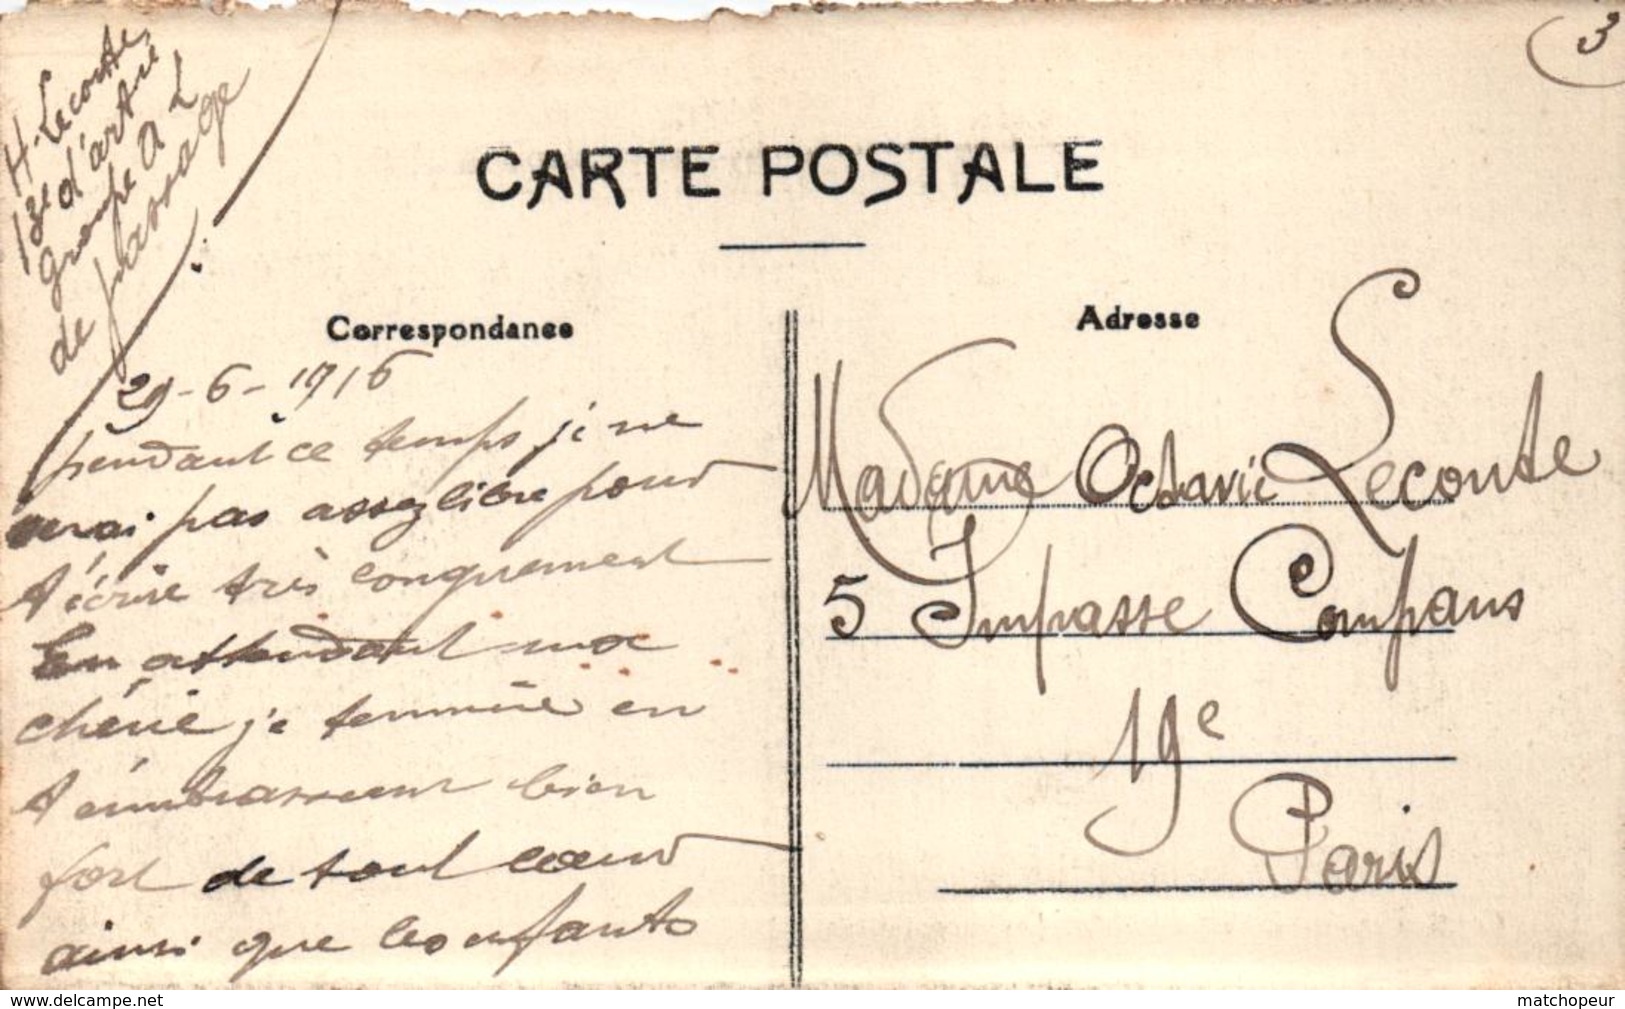 3
H. Leconte,
13e d'art rie
groupe A L
de passage
CARTE POSTALE
Correspondance
29-6-1916
pendant ce temps je ne
serai pas assez libre pour
t'écrire très longuement
En attendant ma
chérie je termine en
t'embrassant bien
fort de tout cœur
ainsi que les enfants
Adresse
Madame Octavie Leconte
5 Impasse Compans
19e
Paris
delcampe.net
matchopeur